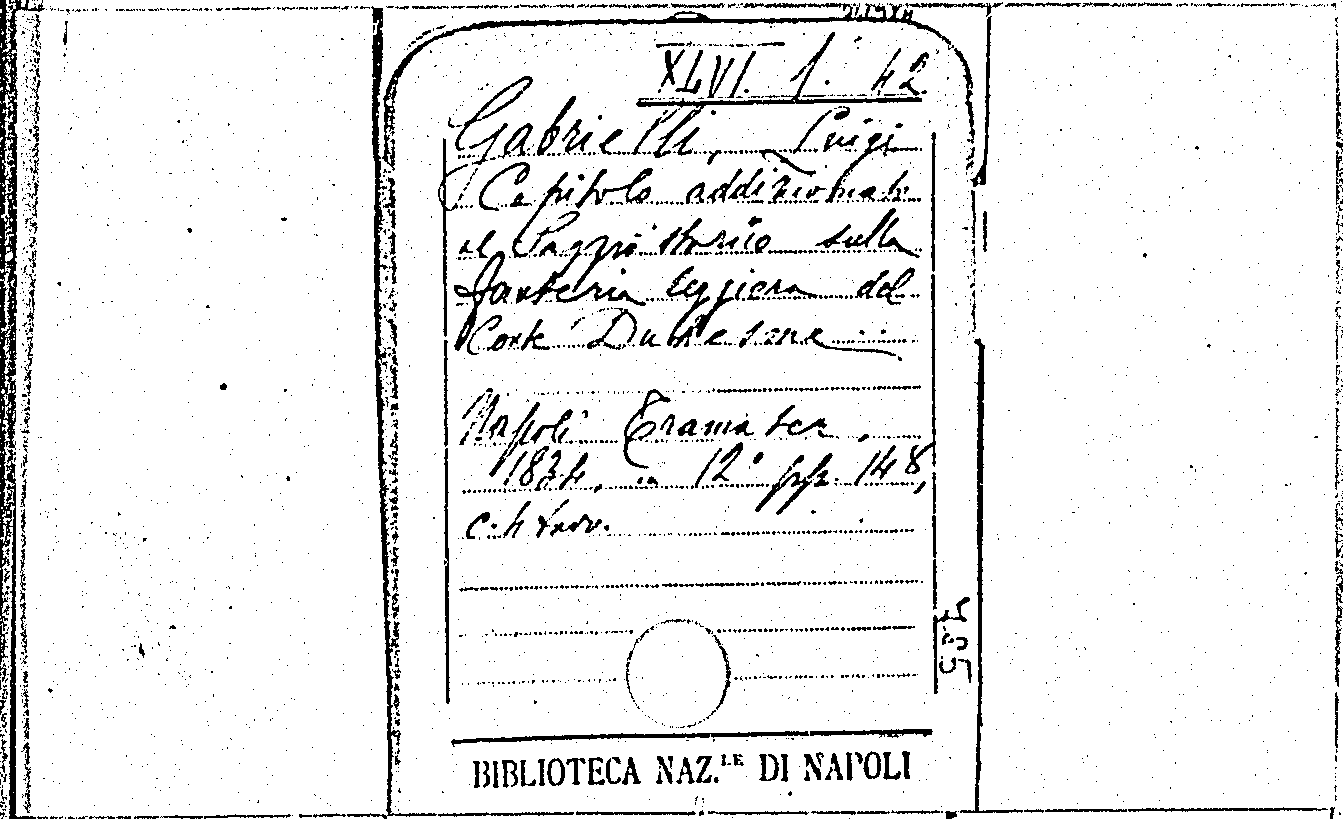 XLVI. 1. 42
Gabrielli, Luigi
Capitolo addizionale
al Saggio storico sulla
fanteria leggiera del
Conte Duhesme
Napoli Tramater,
1834, in 12° pp. 148,
c. 4 tavv.
BIBLIOTECA NAZ.LE DI NAPOLI